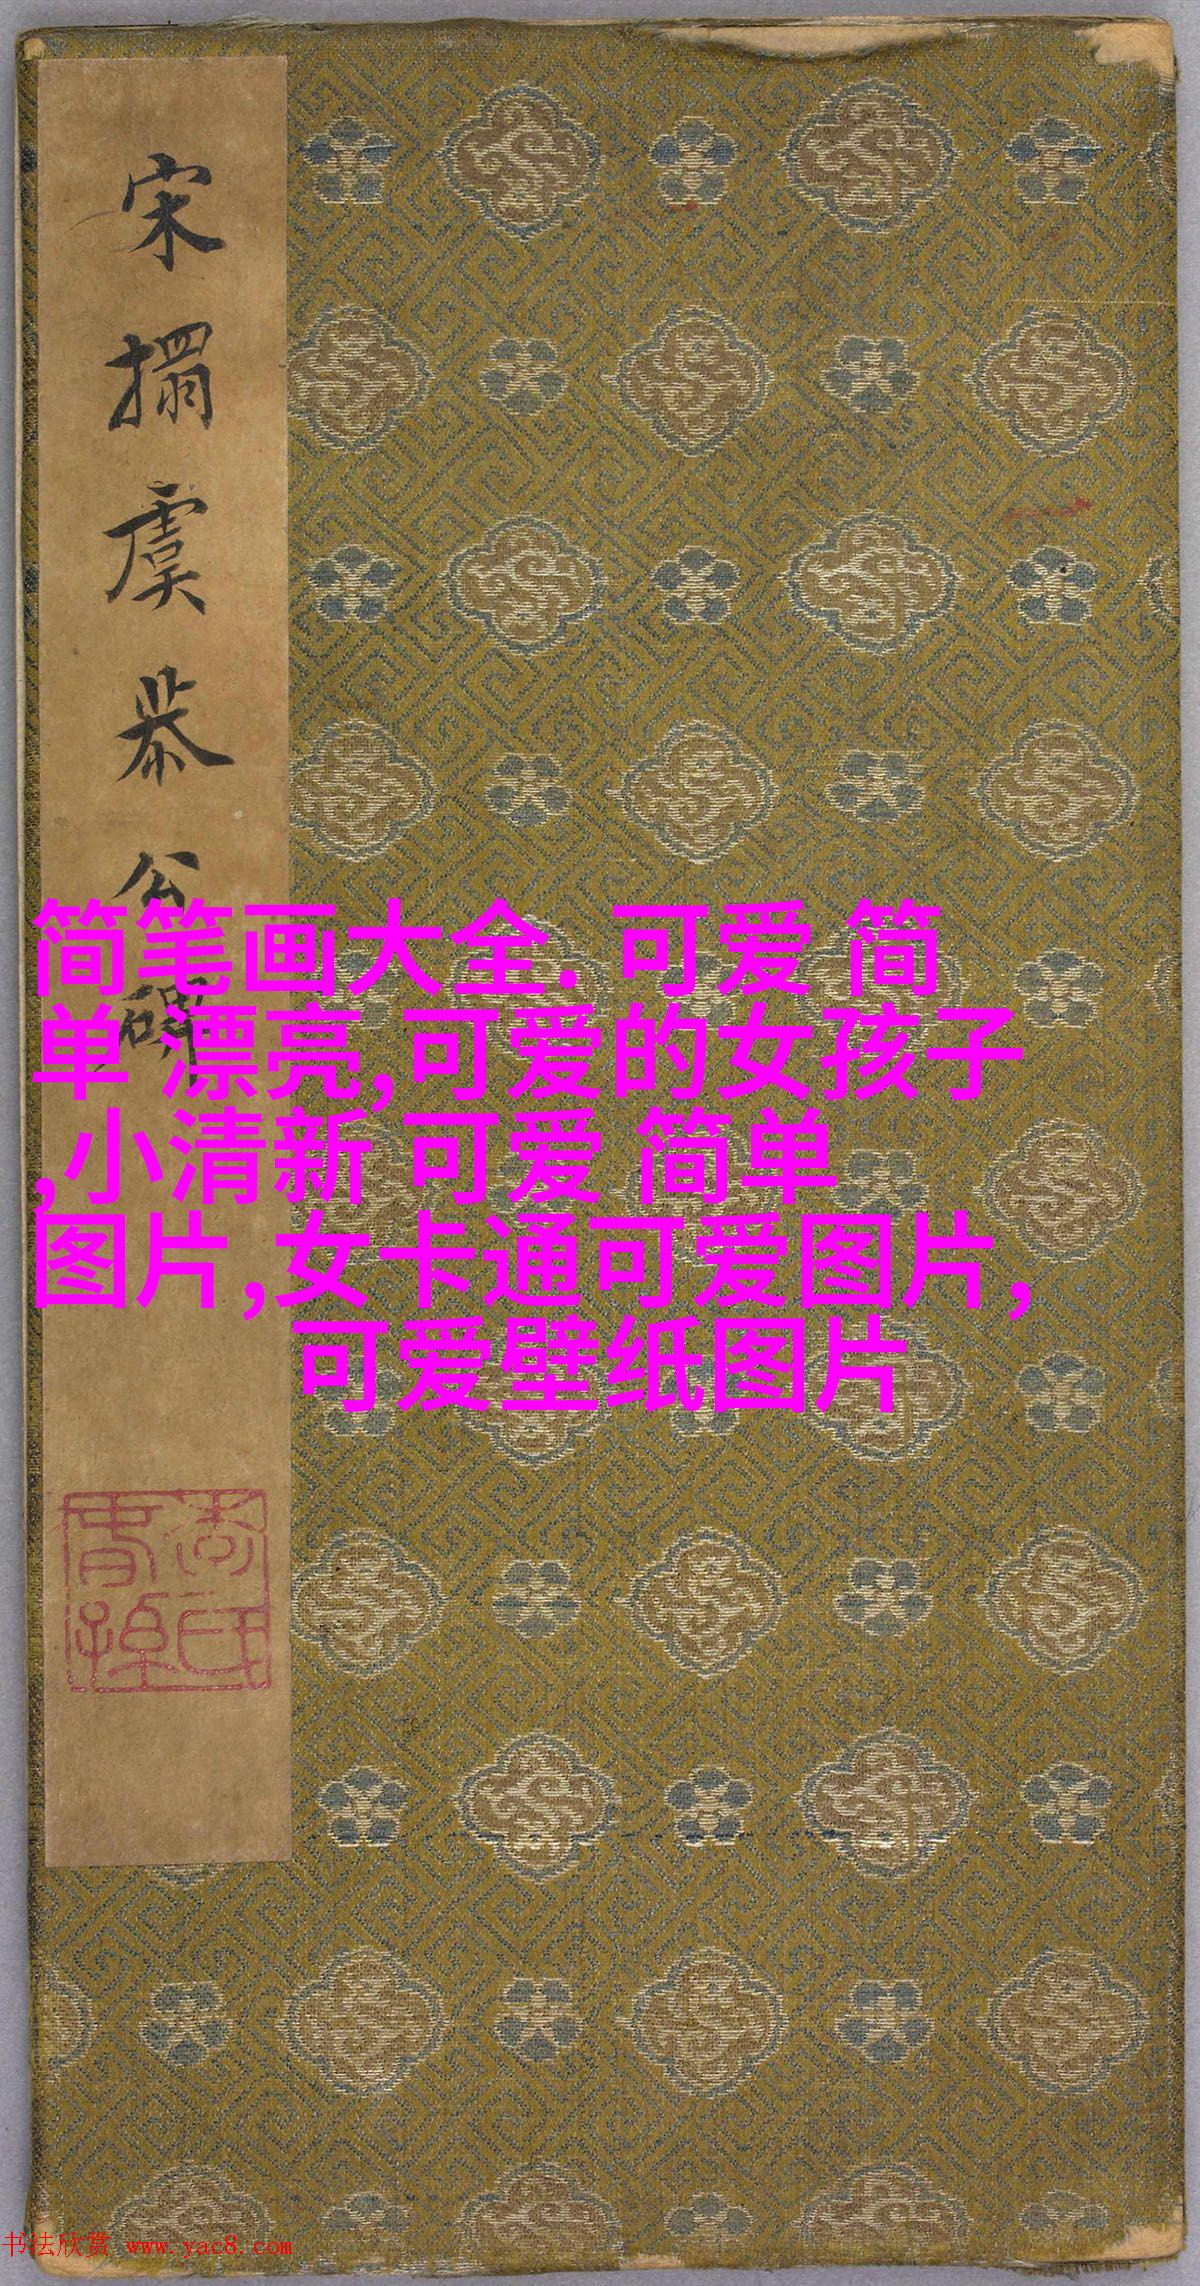 宋搨虞恭公碑
简笔画大全. 可爱 简
单 漂亮,可爱的女孩子
,小清新 可爱 简单
图片,女卡通可爱图片,
可爱壁纸图片
书法欣赏 www.yac8.com